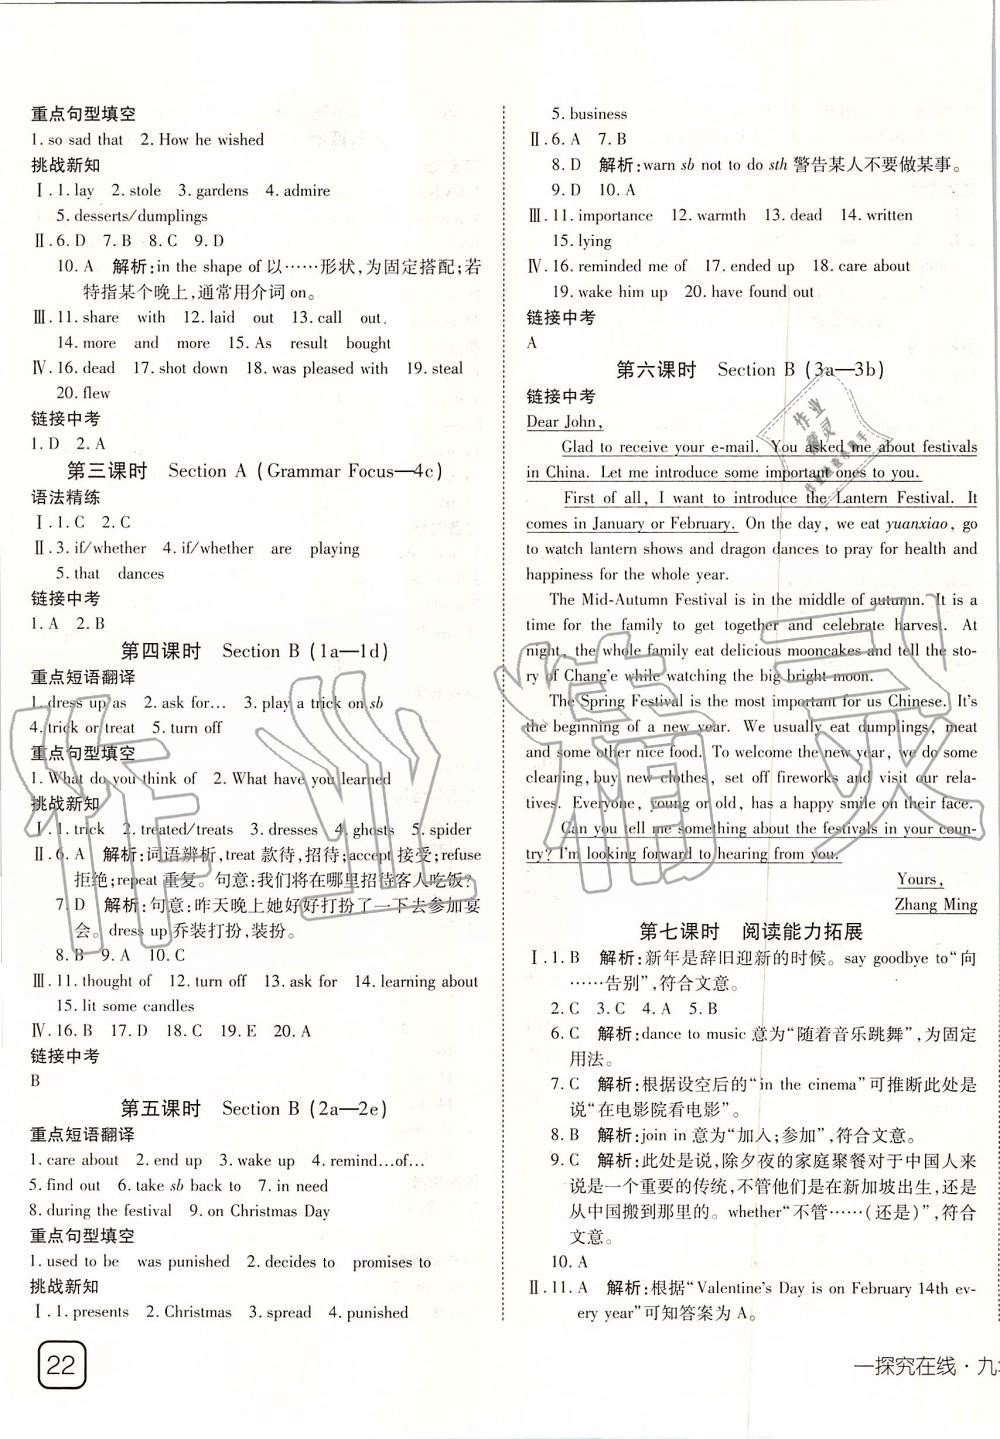 重点句型填空
1. so sad that  2. How he wished
挑战新知
Ⅰ. 1. lay  2. stole  3. gardens  4. admire
5. desserts/dumplings
Ⅱ. 6. D  7. B  8. C  9. D
10. A  解析:in the shape of 以……形状,为固定搭配;若
特指某个晚上,通常用介词 on。
Ⅲ. 11. share  with  12. laid  out  13. call  out
14. more  and  more  15. As  result  bought
Ⅳ. 16. dead  17. shot down  18. was pleased with  19. steal
20. flew
链接中考
1. D  2. A
第三课时  Section A (Grammar Focus—4c)
语法精练
Ⅰ. 1. C  2. C
Ⅱ. 3. if/whether  4. if/whether  are  playing
5. that  dances
链接中考
1. A  2. B
第四课时  Section B (1a—1d)
重点短语翻译
1. dress up as  2. ask for…  3. play a trick on sb
4. trick or treat  5. turn off
重点句型填空
1. What do you think of  2. What have you learned
挑战新知
Ⅰ. 1. trick  2. treated/treats  3. dresses  4. ghosts  5. spider
Ⅱ. 6. A  解析:词语辨析,treat 款待,招待;accept 接受;refuse
拒绝;repeat 重复。句意:我们将在哪里招待客人吃饭?
7. D  解析:句意:昨天晚上她好好打扮了一下去参加宴
会。dress up 乔装打扮,装扮。
8. B  9. A  10. C
Ⅲ. 11. thought of  12. turn off  13. ask for  14. learning about
15. lit some candles
Ⅳ. 16. B  17. D  18. C  19. E  20. A
链接中考
B
第五课时  Section B (2a—2e)
重点短语翻译
1. care about  2. end up  3. wake up  4. remind…of…
5. find out  6. take sb back to  7. in need
8. during the festival  9. on Christmas Day
重点句型填空
1. used to be  was punished  2. decides to  promises to
挑战新知
Ⅰ. 1. presents  2. Christmas  3. spread  4. punished
5. business
Ⅱ. 6. A  7. B
8. D  解析:warn sb not to do sth 警告某人不要做某事。
9. D  10. A
Ⅲ. 11. importance  12. warmth  13. dead  14. written
15. lying
Ⅳ. 16. reminded me of  17. ended up  18. care about
19. wake him up  20. have found out
链接中考
A
第六课时  Section B (3a—3b)
链接中考
Dear John,
Glad to receive your e-mail. You asked me about festivals
in China. Let me introduce some important ones to you.
First of all, I want to introduce the Lantern Festival. It
comes in January or February. On the day, we eat yuanxiao, go
to watch lantern shows and dragon dances to pray for health and
happiness for the whole year.
The Mid-Autumn Festival is in the middle of autumn. It is a
time for the family to get together and celebrate harvest. At
night, the whole family eat delicious mooncakes and tell the sto-
ry of Chang'e while watching the big bright moon.
The Spring Festival is the most important for us Chinese. It's
the beginning of a new year. We usually eat dumplings, meat
and some other nice food. To welcome the new year, we do some
cleaning, buy new clothes, set off fireworks and visit our rela-
tives. Everyone, young or old, has a happy smile on their face.
Can you tell me something about the festivals in your coun-
try? I'm looking forward to hearing from you.
Yours,
Zhang Ming
第七课时  阅读能力拓展
Ⅰ. 1. B  解析:新年是辞旧迎新的时候。say goodbye to“向
……告别”,符合文意。
2. C  3. C  4. A  5. B
6. C  解析:dance to music 意为“随着音乐跳舞”,为固定
用法。
7. C  解析:根据设空后的“in the cinema”可推断此处是
说“在电影院看电影”。
8. B  解析:join in 意为“加入;参加”,符合文意。
9. C  解析:此处是说,除夕夜的家庭聚餐对于中国人来
说是一个重要的传统,不管他们是在新加坡出生,还是
从中国搬到那里的。whether“不管……(还是)”,符合
文意。
10. A
Ⅱ. 11. A  解析:根据“Valentine's Day is on February 14th ev-
ery year”可知答案为 A。
22
一探究在线·九
作业精灵